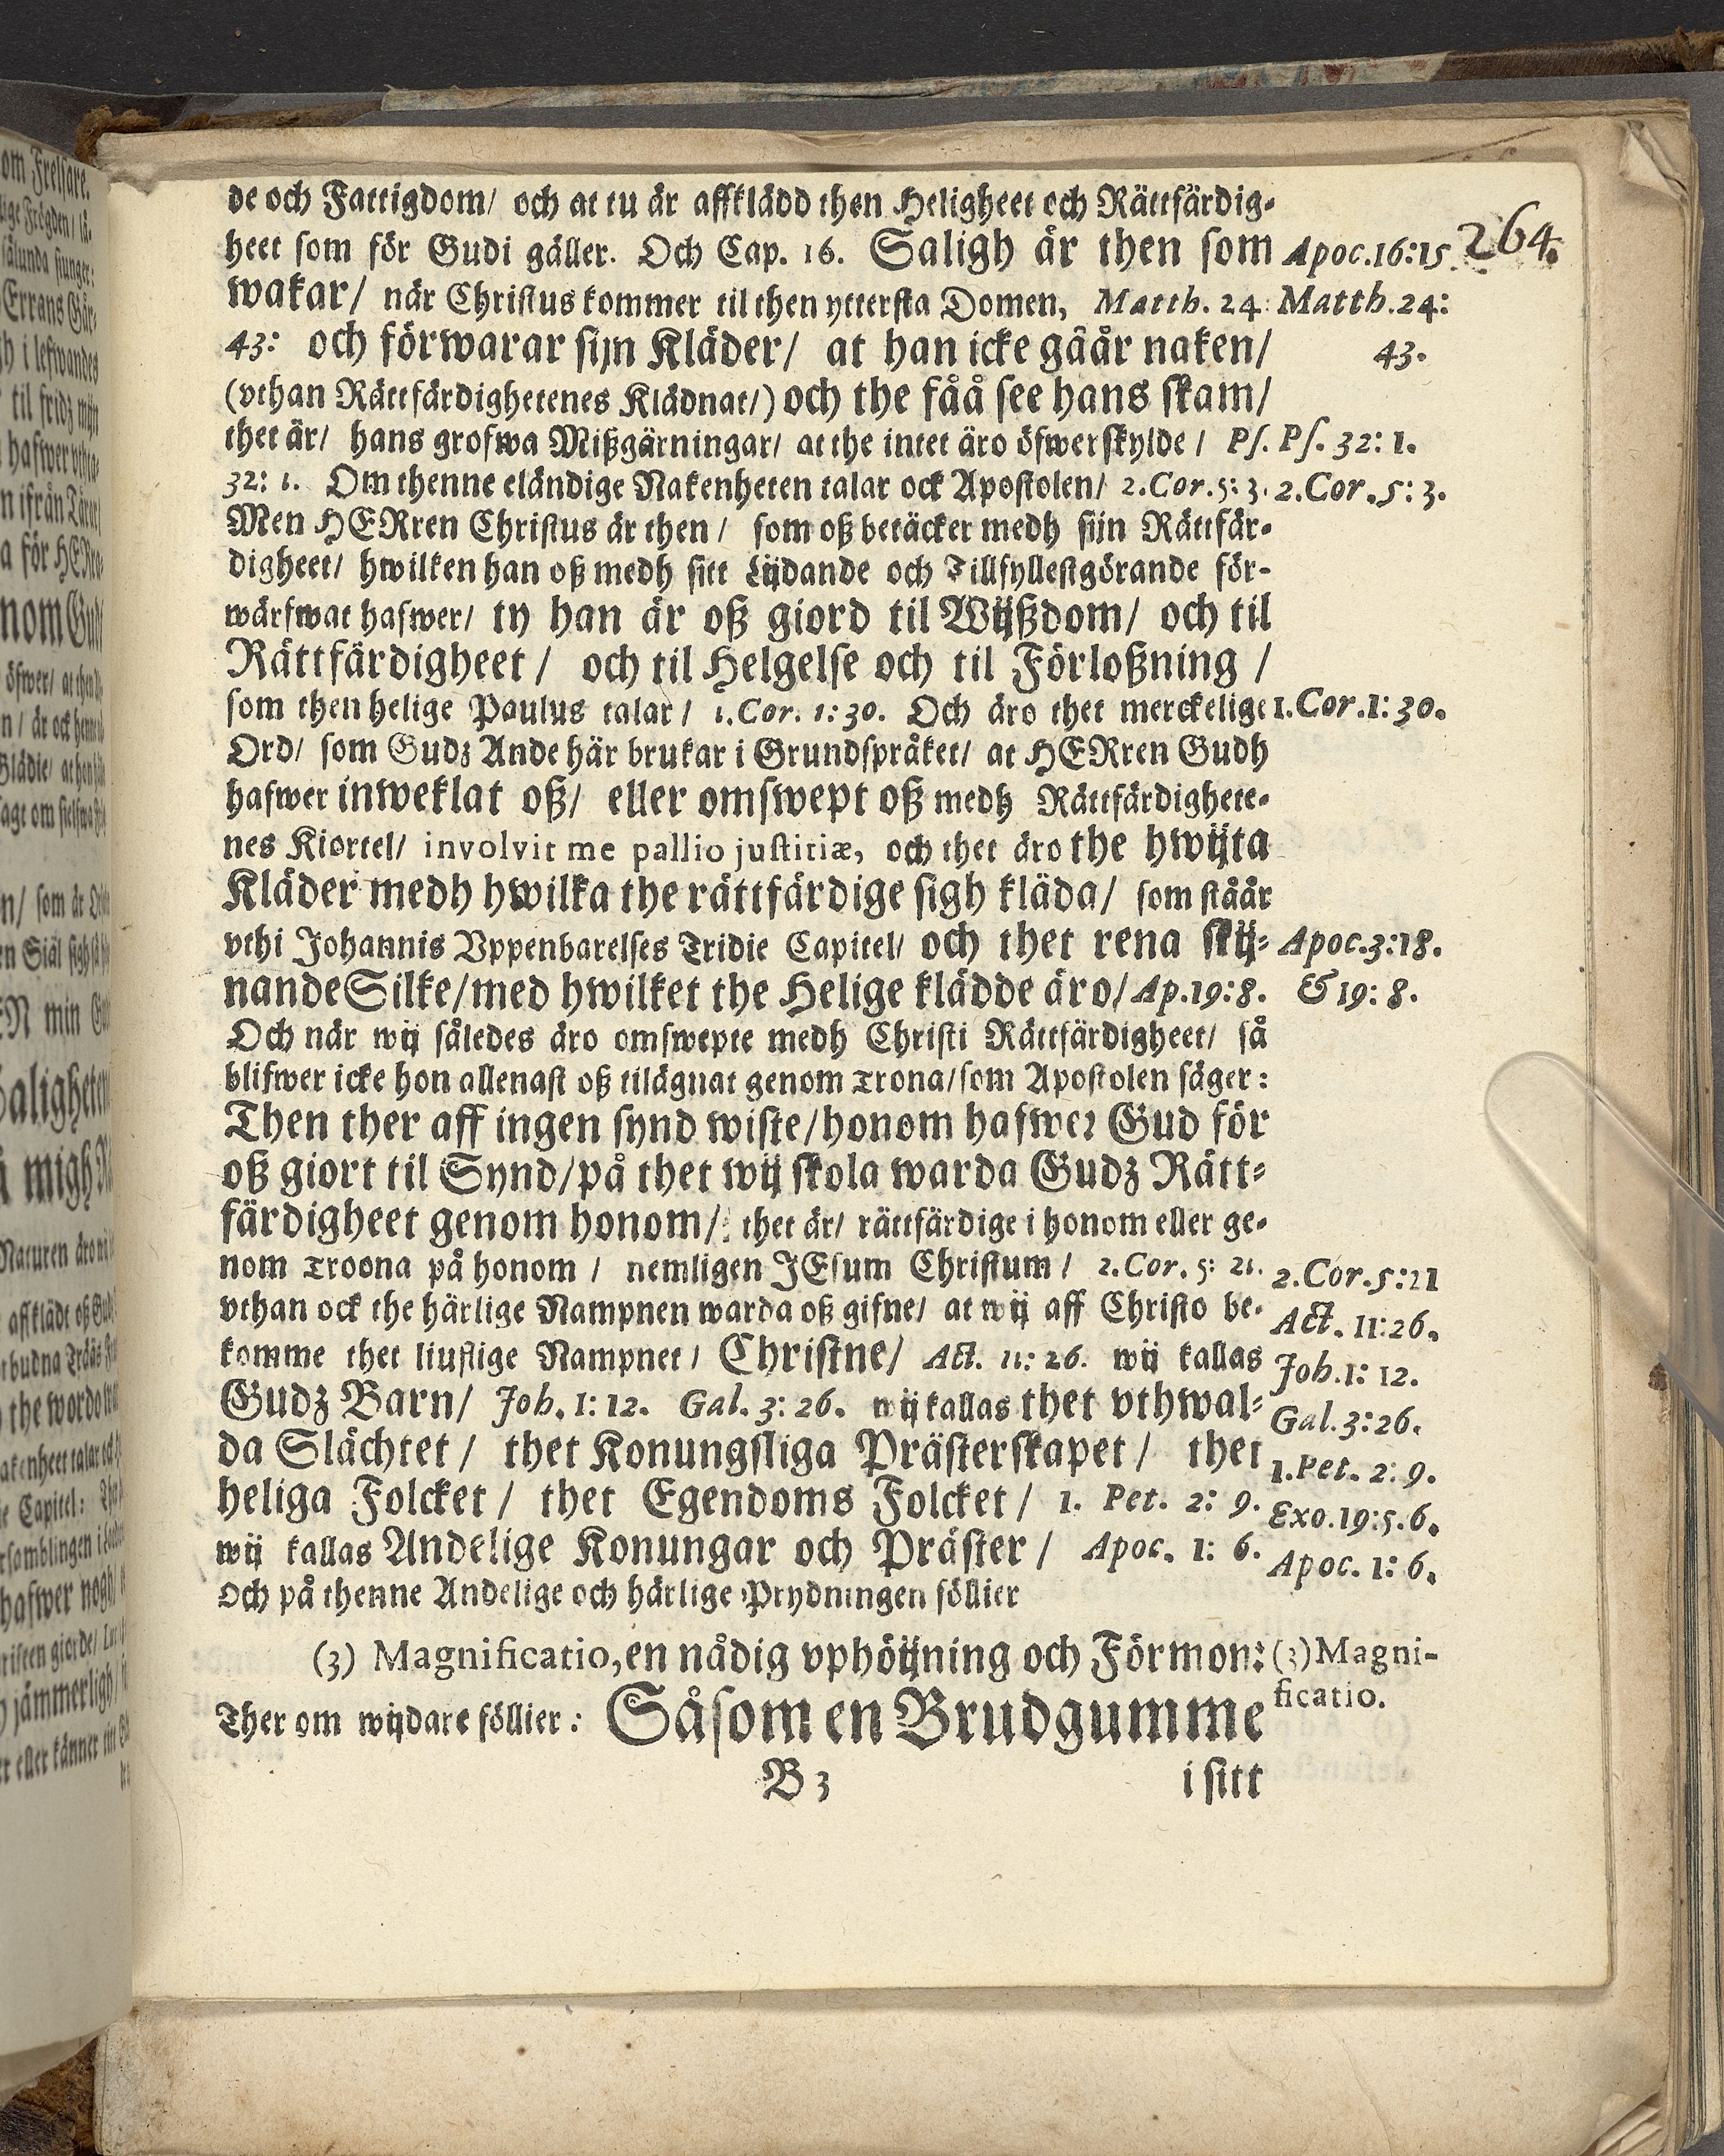 de och Fattigdom/ och at tu är affklädd then Heligheet och Rättfärdig-
heet som för Gudi gäller. Och Cap. 16. Saligh är then som
wakar/ när Christus kommer til then yttersta Domen, Matth. 24:
43: och förwarar sijn Kläder/ at han icke gåår naken/
(vthan Rättfärdighetenes Klädnat/) och the fåå see hans skam/
thet är/ hans grofwa Mißgärningar/ at the intet äro öfwerskylde / Ps.
32: 1. Om thenne eländige Nakenheten talar ock Apostolen/ 2.Cor.5: 3.
Men HERren Christus är then / som oß betäcker medh sijn Rättfär-
digheet/ hwilken han oß medh sitt Lijdande och Tillfyllestgörande för-
wärfwat hafwer/ ty han är oß giord til Wijßdom/ och til
Rättfärdigheet / och til Helgelse och til Förloßning /
som then helige Paulus talar / 1.Cor. 1:30. Och äro thet merckelige
Ord/ som Gudz Ande här brukar i Grundspråket/ at HERren Gudh
hafwer inweklat oß/ eller omswept oß medh Rättfärdighete-
nes Kiortel/ involvit me pallio justitiæ, och thet äro the hwijta
Kläder medh hwilka the rättfärdige sigh kläda/ som ståår
vthi Johannis Vppenbarelses Tridie Capitel/ och thet rena skij-
nande Silke/med hwilket the Helige klädde äro/ Ap.19:8.
Och när wij således äro omswepte medh Christi Rättfärdigheet/ så
blifwer icke hon allenast oß tilägnat genom Trona/som Apostolen säger:
Then ther aff ingen synd wiste/honom hafwer Gud för
oß giort til Synd/på thet wij skola warda Gudz Rätt-
färdigheet genom honom/: thet är/ rättfärdige i honom eller ge-
nom Troona på honom / nemligen JEsum Christum / 2.Cor. 5: 21.
vthan ock the härlige Nampnen warda oß gifne/ at wij aff Christo be-
komme thet liuflige Nampnet / Christne/ Act. 11: 26. wij kallas
Gudz Barn/ Joh. 1: 12. Gal. 3: 26. wij kallas thet vthwal-
da Slächtet / thet Konungsliga Prästerskapet / thet
heliga Folcket / thet Egendoms Folcket / 1. Pet. 2: 9.
wij kallas Andelige Konungar och Präster / Apoc. 1: 6.
Och på thenne Andelige och härlige Prydningen föllier
(3) Magnificatio, en nådig vphöijning och Förmon:
Ther om wijdare föllier: Såsom en Brudgumme
B 3
i sitt
264.
Apoc.16:15.
Matth.24:
43.
Ps. 32: 1.
2.Cor.5: 3.
1.Cor.1:30.
Apoc.3:18.
& 19: 8.
2.Cor.5:21
Act. 11:26.
Joh.1: 12.
Gal.3:26.
1.Pet. 2: 9.
Exo.19:5.6.
Apoc. 1: 6.
(3)Magni-
ficatio.